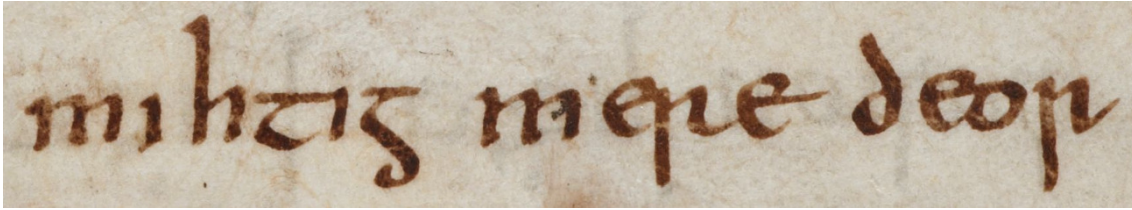 mihtig mere deor